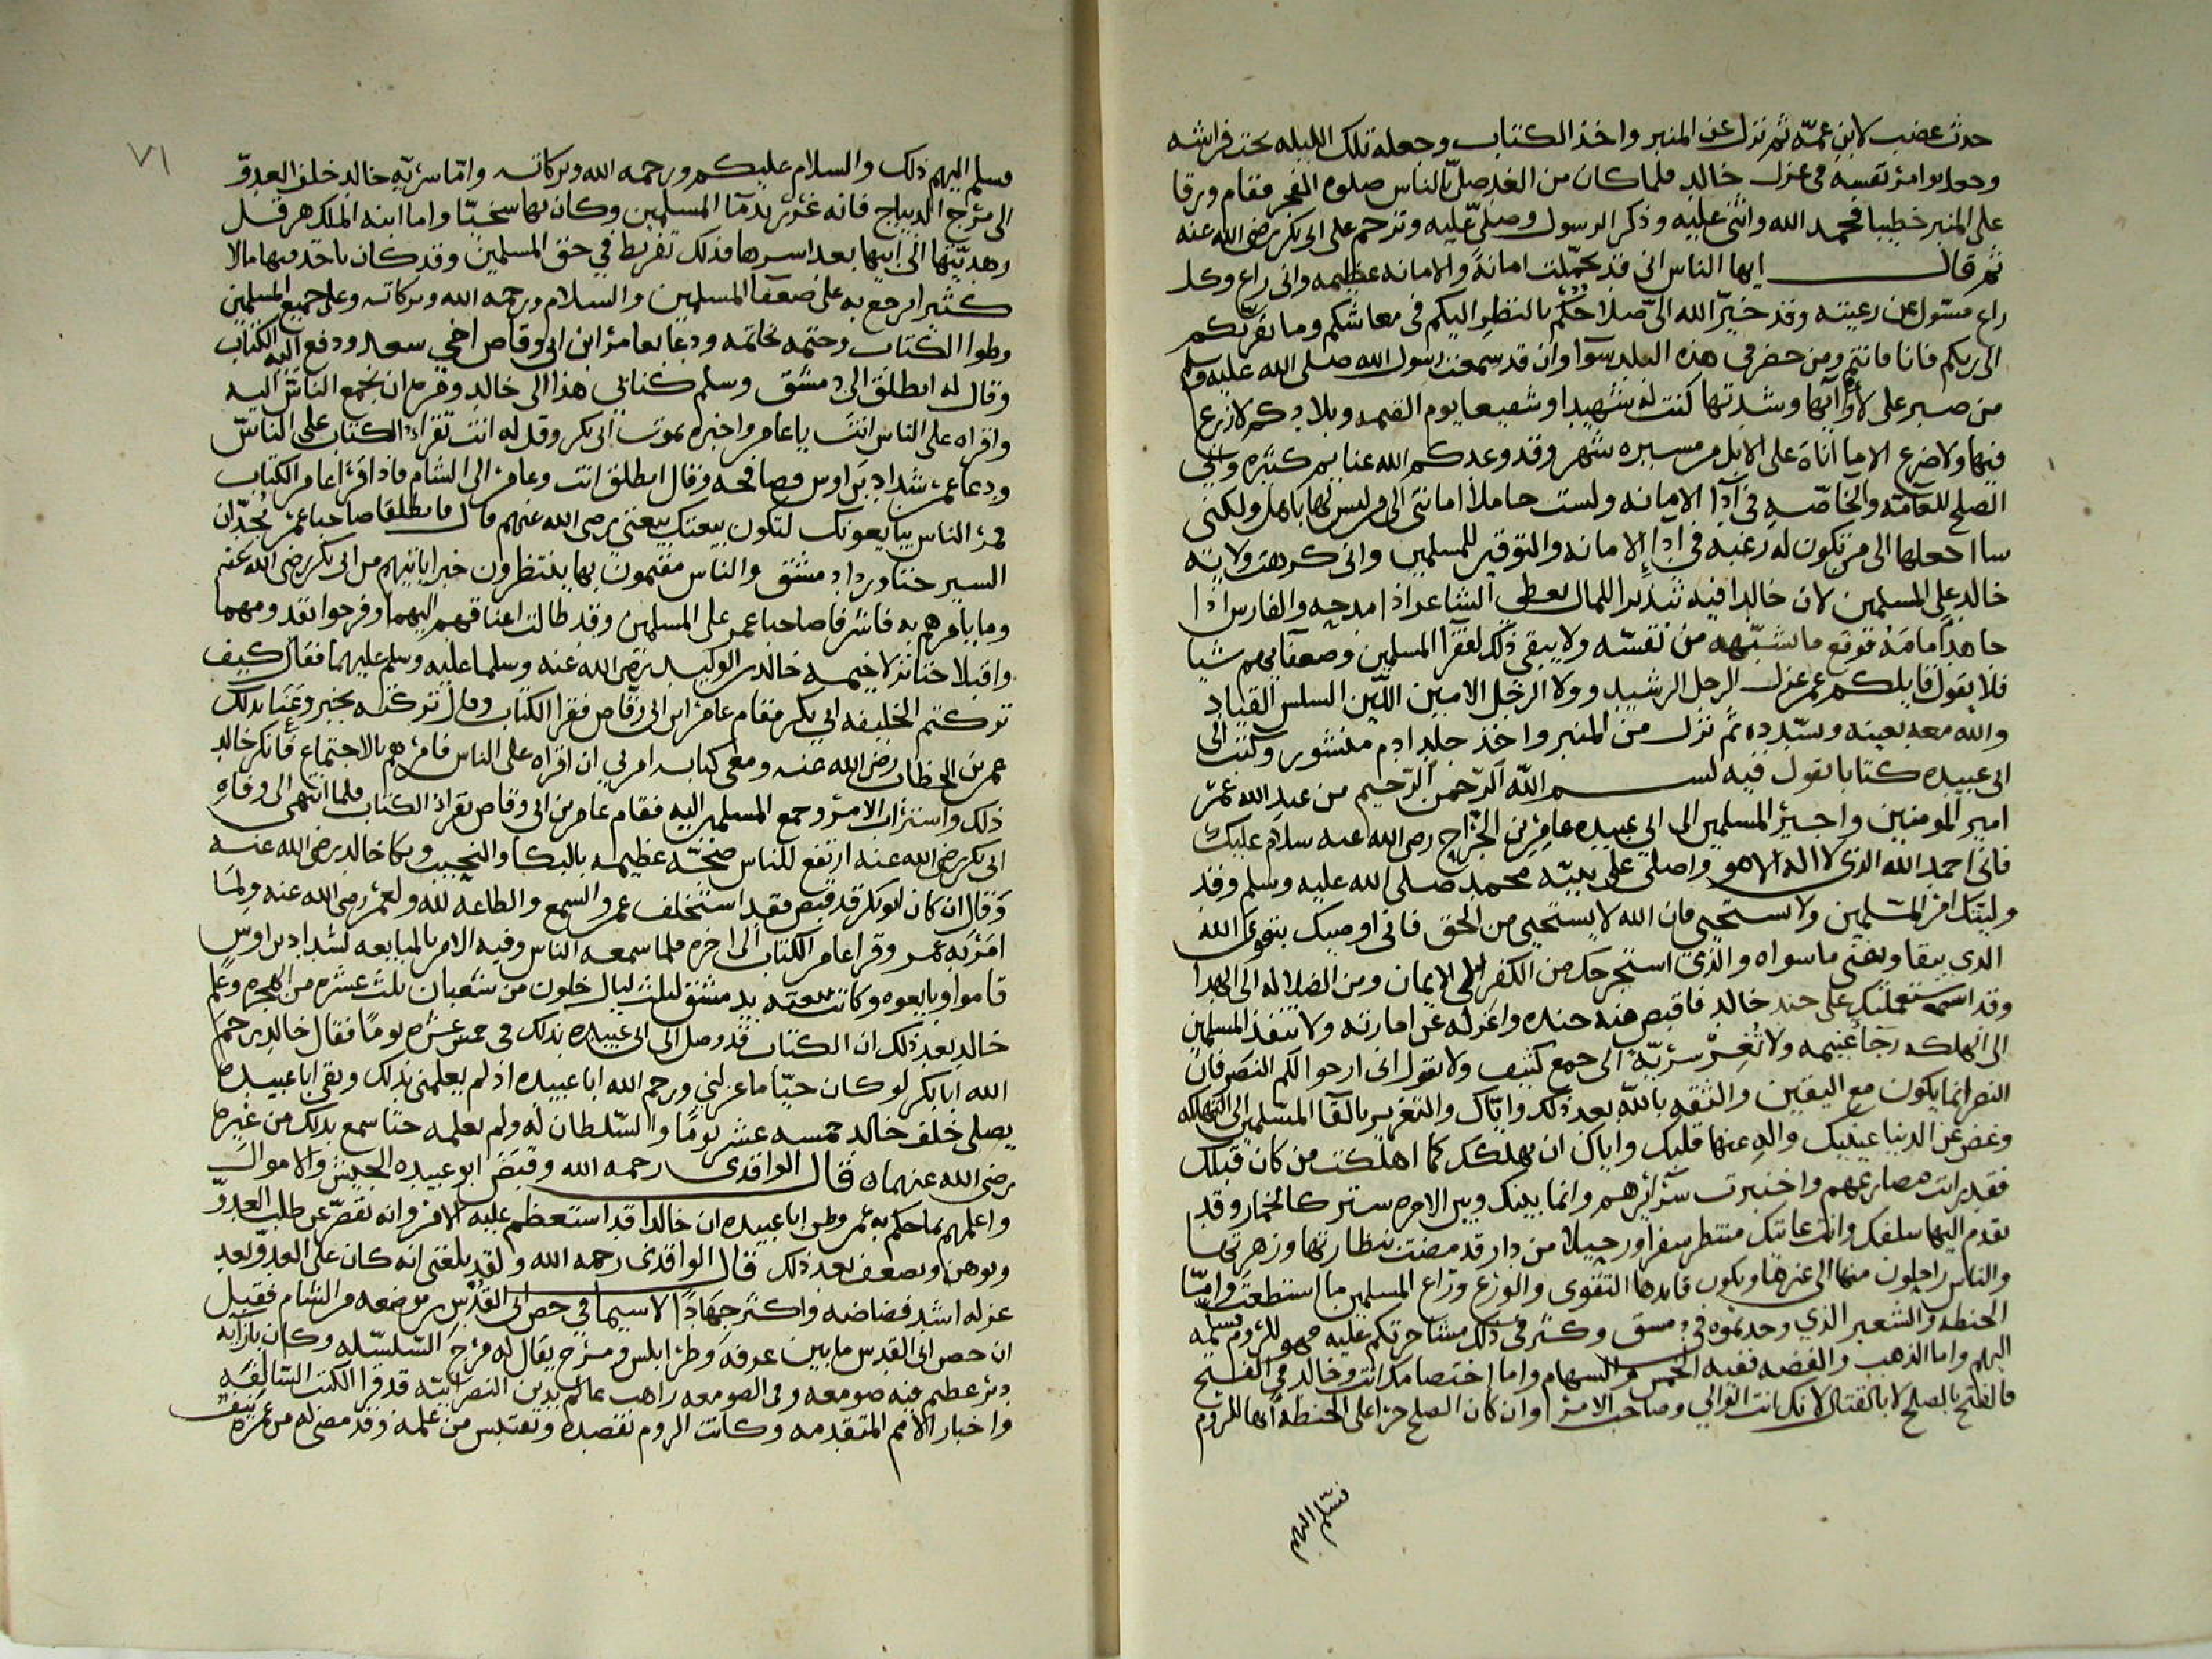 حدث غضب لابن عمّه ثم نزل عن المنبر واخذ الكتاب وجعله تلك الليله تحت فراشه
وجعل يوامر نفسه في عزل خالد فلما كان من الغد صلّى بالناس صلوه الفجر فقام ورقا
على المنبر خطيبا فحمد الله واثنى عليه وذكر الرسول وصلّى عليه وترحم على ابي بكر رضي الله عنه
ثم قال ايها الناس اني قد تحمّلت امانة والامانه عظيمه واني راع وكل
راع مسئول عن رعيته وقد خيّر الله الىّ صلاحكم بالنظر اليكم في معاشكم وما يقربكم
الى ربكم فانا فانتم ومن حضر في هذه البلد سوآ وان قد سمعت رسول الله صلى الله عليه وسلم
من صبر على لأوآئها وشدتها كنت له شهيدا او شفيعا يوم القيمه وبلادكم لا زرع
فيها ولا ضرع الا ما اتاه على الابل من مسيره شهر وقد وعدكم الله غنايم كثيره واني
الصلح للعامّه والخاصّه في آدآ الامانه ولست حاملا امانتي الى من ليس لها باهل ولكني
سا اجعلها الى من تكون له رغبه في ادآ الامانه والتوقير للمسلمين واني كرهت ولايه
خالد على المسلمين لان خالدا فيه تبذيرا للمال يعطي الشاعر اذا مدحه والفارس اذا
جاهد امامه فوقع ما يشبّهه من نفسه ولا يبقي ذلك لفقرآ المسلمين وضعفآيهم شيا
فلا يقول قايلكم عمر عزل الرجل الرشيد وولا الرجل الامين الليّن السلس القياد
والله معه يعينه ويسدده ثم نزل من المنبر واخذ جلد ادم منشور وكتب الى
ابي عبيده كتابا يقول فيه بسم الله الرحمن الرحيم من عبد الله عمر
امير المومنين واجير المسلمين الى ابي عبيده عامر بن الجرّاح رضي الله عنه سلام عليك
فاني احمد الله الذي لا اله الا هو واصلي على نبيّه محمد صلى الله عليه وسلم وقد
وليتك امر المسلمين ولا تستحيي فان الله لا يستحيي من الحق فاني اوصيك بتقوى الله
الذي يبقا ويفنى ما سواه والذي استخرجك من الكفر الى الايمان ومن الضلاله الى الهدا
وقد استعملتك على جند خالد فاقبض منه جنده واعزله عن امارته ولا تنفذ المسلمين
الى الهلكه رجآ غنيمه ولا تغرّ سريّة الى جمع كثيف ولا تقول اني ارجوا لكم النصر فان
النصر انما يكون مع اليقين والثقه بالله بعد ذلك وايّاك والتغرير بالقآ المسلمين الى التهلكه
وغض عن الدنيا عينيك واله عنها قلبك واياك ان تهلكك كما اهلكت من كان قبلك
فقد رايت مصارعهم واختبرت سرآئرهم وانما بينك وبين الاخره ستر كالخمار وقد
تقدم اليها سلفك وانت كانك منتظر سفرا ورحيلا من دار قد مضت نظارتها وزهرتها
والناس راحلون منها الى غيرها ويكون قايدها التقوى والورع وراع المسلمين ما استطعت وامّا
الحنطه والشعير الذي وجدتموه في دمشق وكثر في ذلك مشاجرتكم عليه فهو للروم فسلمه
اليهم واما الذهب والفضه ففيه الخمس والسهام واما اختصامك انت وخالد في الفتح
فالفتح بالصلح لا بالقتال لانك انت الوالي وصاحب الامر وان كان الصلح جرا على الحنطه انها للروم
فسلّم
اليهم
٧١
فسلم اليهم ذلك والسلام عليكم ورحمه الله وبركاته وامّا سريّه خالد خلف العدوّ
الى مرج الديباج فانه غرر بدمآ المسلمين وكان بها سخيّا واما ابنه الملك هرقل
وهديّتها الى ابيها بعد اسرها فذلك تفريط في حق المسلمين وقد كان ياخد فيها مالا
كثيرا يرجع به على ضعفآ المسلمين والسلام ورحمه الله وبركاته وعلى جميع المسلمين
وطوا الكتاب وختمه بخاتمه ودعا بعامر ابن ابي وقاص اخي سعد ودفع اليه الكتاب
وقال له انطلق الى دمشق وسلم كتابي هذا الى خالد ومره ان يجمع الناس اليه
واقراه على الناس انت يا عامر واخبره بموت ابي بكر وقل له انت تقراء الكتاب على الناس
ودعا عمر شداد بن اوس فصافحه وقال انطلق انت وعامر الى الشام فاذا قرا عامر الكتاب
فمر الناس يبايعونك لتكون بيعتك بيعتي رضي الله عنهم قال فانطلقا صاحبا عمر يجدّان
السير حتا وردا دمشق والناس مقيمون بها ينتظرون خبرا ياتيهم من ابي بكر رضي الله عنه
وما يامرهم به فاشرفا صاحبا عمر على المسلمين وقد طالت اعناقهم اليهما وفرحوا بقدومهما
واقبلا حتا نزلا خيمه خالد بن الوليد رضي الله عنه وسلما عليه وسلم عليهما فقال كيف
تركتم الخليفه ابي بكر فقام عامر ابن ابي وقاص فقرا الكتاب وقال تركته بخير وعنا بذلك
عمر بن الخطاب رضي الله عنه ومعي كتابه امرني ان اقراه على الناس فامرهم بالاجتماع فانكر خالد
ذلك واستراب الامر وجمع المسلمين اليه فقام عامر بن ابي وقاص بقراة الكتاب فلما انتهى الى وفاه
ابي بكر رضي الله عنه ارتفع للناس ضجّه عظيمه بالبكا والنحيب وبكا خالد رضي الله عنه
وقال ان كان ابو بكر قد قبض فقد استخلف عمر والسمع والطاعه لله ولعمر رضي الله عنه ولما
امر به عمر وقرا عامر الكتاب الى اخره فلما سمعه الناس وفيه الامر بالمبايعه لشداد بن اوس
قاموا وبايعوه وكانت بيعته بدمشق لثلث ليال خلون من شعبان ثلث عشره من الهجره وعلم
خالد بعد ذلك ان الكتاب قد وصل الى ابي عبيده بذلك في خمس عشره يوما فقال خالد رحم
الله ابا بكر لو كان حيّا ما عزلني ورحم الله ابا عبيده اذ لم يعلمني بذلك وبقي ابا عبيده
يصلي خلف خالد خمسه عشر يوما والسلطان له ولم يعلمه حتا سمع بذلك من غيره
رضي الله عنهما قال الواقدي رحمه الله وقبض ابو عبيده الجيش والاموال
واعلمهم بما حكم به عمر وظن ابا عبيده ان خالدا قد استعظم عليه الامر وانه يقصّر عن طلب العدوّ
ويوهن ويضعف بعد ذلك قال الواقدي رحمه الله ولقد بلغني انه كان على العدوّ بعد
عزله اشد فضاضه واكثر جهادا لا سيما في حصن ابي القدس من موضعه من الشام فقيل
ان حصن ابي القدس ما بين عرقه وطرابلس ومرج يقال له مرج السلسله وكان بازآيه
دير عظيم فيه صومعه وفي الصومعه راهب عالم بدين النصرانيّه قد قرا الكتب السالفه
واخبار الامم المتقدمه وكانت الروم تقصده وتقتبس من علمه وقد مضى له من عمره نيف